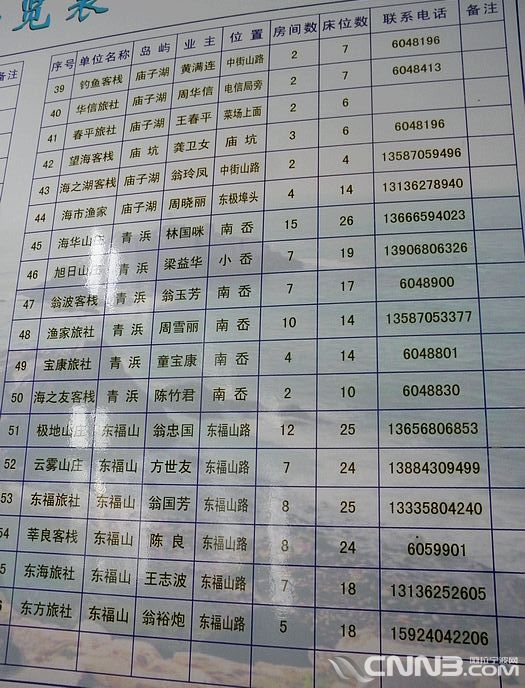 览表
备注
序号 单位名称 岛屿 业主 位置 房间数 床位数 联系电话 备注
39 钓鱼客栈 庙子湖 黄满连 中街山路 2 7 6048196
40 华信旅社 庙子湖 周华信 电信局旁 2 7 6048413
41 春平旅社 庙子湖 王春平 菜场上面 2 6
42 望海客栈 庙坑 龚卫女 庙坑 3 6 6048196
43 海之湖客栈 庙子湖 翁玲凤 中街山路 2 4 13587059496
44 海市渔家 庙子湖 周晓丽 东极埠头 4 14 13136278940
45 海华山庄 青浜 林国咪 南岙 15 26 13666594023
46 旭日山庄 青浜 梁益华 小岙 7 19 13906806326
47 翁波客栈 青浜 翁玉芳 南岙 7 17 6048900
48 渔家旅社 青浜 周雪丽 南岙 10 14 13587053377
49 宝康旅社 青浜 童宝康 南岙 4 14 6048801
50 海之友客栈 青浜 陈竹君 南岙 2 10 6048830
51 极地山庄 东福山 翁忠国 东福山路 12 25 13656806853
52 云雾山庄 东福山 方世友 东福山路 7 24 13884309499
53 东福旅社 东福山 翁国芳 东福山路 8 25 13335804240
54 莘良客栈 东福山 陈良 东福山路 8 24 6059901
5 东海旅社 东福山 王志波 东福山路 7 18 13136252605
6 东方旅社 东福山 翁裕炮 东福山路 5 18 15924042206
CNNB.com.cn